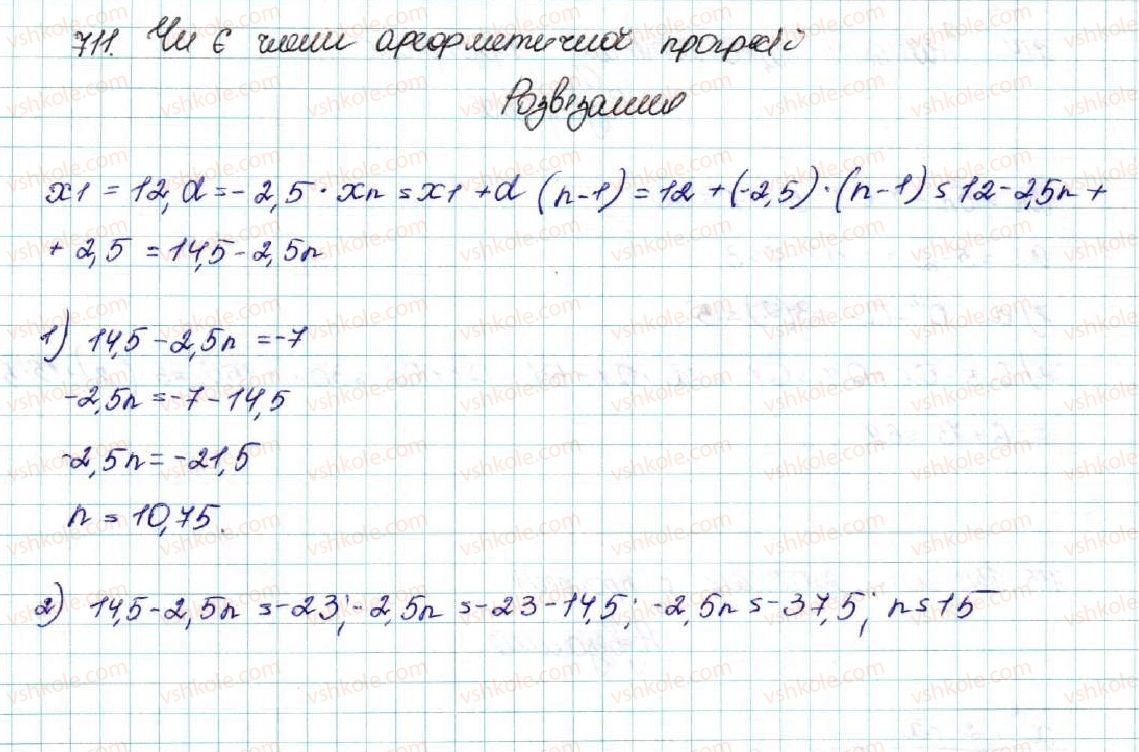 711. Чи є члени арифметичної прогресії
Розвязання
x1 = 12, d = - 2,5 · xn = x1 + d (n-1) = 12 + (-2,5) · (n-1) = 12 - 2,5n +
+ 2,5 = 14,5 - 2,5n
1) 14,5 - 2,5n = -7
-2,5n = -7 - 14,5
-2,5n = -21,5
n = 10,75.
2) 14,5 - 2,5n = -23; -2,5n = -23 - 14,5; -2,5n = -37,5; n = 15